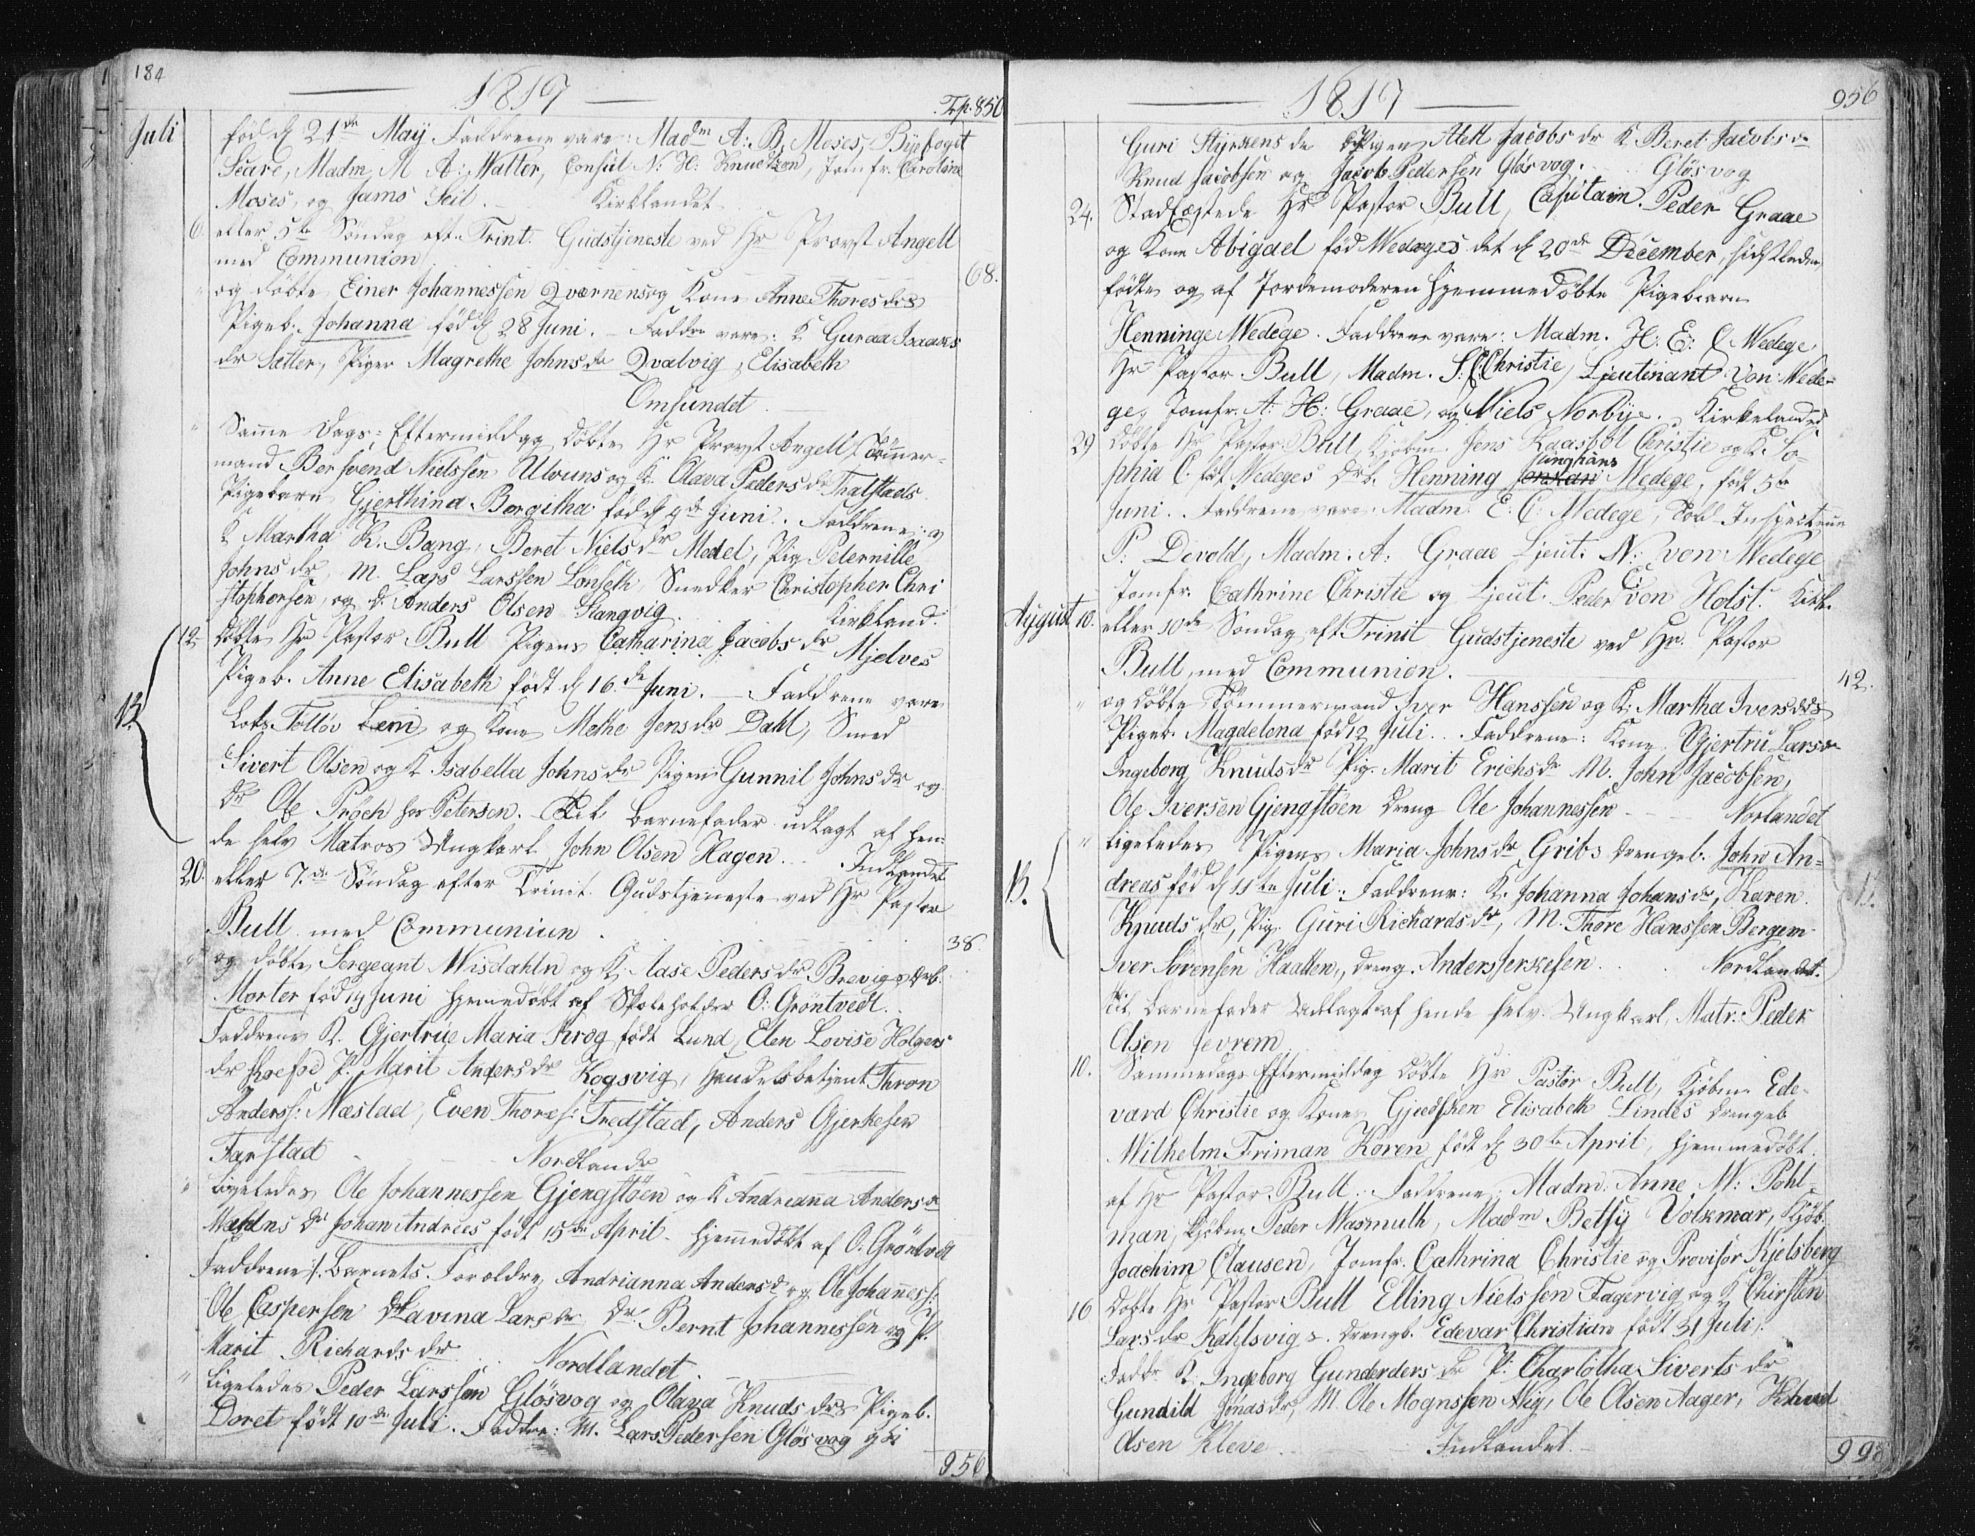 184
1817
Trp. 850
Juli
fød d 21de May Faddrene vare: Madm A: B. Moses, Byefoget
Madm M A: Walter, Consul N: H: Knudtzon, Jomfr. Caroline
Moses, og James Seil. Kirklandet
6. eller 5te Søndag efter Trint. Gudstjeneste ved Hr Provst Angell
med Communion
68.
" og døbte Einer Johannessen Qværnensog Kone Anne Thoresdrs
Pigeb. Johanna fød d 28 Juni. Faddre vare: K Guraa Isaaks
dr Sætter, Piger Magrethe Johnsdr Qvalvig, Elisabeth
Omsundet.
" Samme Dags Eftermiddag døbte Hr Provst Angell Tømmer-
mand Bersvend Nielssen Ulvuns og K. Olava Pedersdr Thalstads
Pigebarn Gjerthina Bergitha fød d 4de Juni. Faddrene: v
K Martha K. Bang, Beret Nielsdr Medel, Pig Peternille
Johnsdr, M. Lars Larssen Lonseth, Snedker Christopher Chri
stophersen, og d. Anders Olsen Stangvig. Kirkland:
12. døbte Hr Pastor Bull Pigens Catharina Jacobsdr Mjelves
Pigeb. Anne Elisabeth født d 16de Juni. — Faddrene vare
Lots Tolløv Leni og Kone Methe Jensdr Dahl, Smed
Sivert Olsen og K Isabella Johnsdr Pigen Gunnil Johnsdr og
dr Ole Pröch hos Petersen. Til Barnefader udlagt af hen-
de selv Matros Ungkarl John Olsen Hagen. Indlandet
20. eller 7de Søndag efter Trinit. Gudstjeneste ved Hr Pastor
Bull med Communiun.
38.
og døbte Sergeant Wisdahln og K. Aase Pedersdr Brevigs drb.
Morter fød 19 Juni hjemedøbt af Skoleholder O: Grøntvedt.
Faddrene K. Gjertrue Maria Krog født Lund, Elen Lovise Holgers
dr P. Marit Andersdr Kogsvig, Handelsbetjent Thron
Anderss: Mæstad, Even Thores: Tredstad, Anders Gjerkesen
Farstad Nordlande
" Ligeledes Ole Johannessen Gjengstøen og K Andreanna Andersdr
dr Johan Andrees født 15de April. hjemedøbt af O. Grøntvedt
Faddrene: Barnets Forældre, Andrianna Andersd og Ole Johanness:
Ole Caspersen Lavina Larsdr. Dr. Bernt Johannessen og P.
Marit Richardsdr Nordlandet.
" Ligeledes Peder Larssen Glösvog og Olava Knudsdrs Pigeb.
Doret født 10de Juli. Faddre: M. Lars Pedersen Glösvog
956
1817
956
Guri Styrkens de Pigen Alett Jacobsdr K. Beret Jacobsdr
Knud Jacobsen og Jacob Pedersen Glösvog. Glösvog
24. Stadfæstede Hr Pastor Bull, Capitain Peder Graae
og Kone Abigael fød Wedeges det d 20de December, sidstleden
fødte og af Jordemoderen Hjemmedøbte Pigebarn
Henninge Wedege. Faddrene vare: Madm. H: E: C Wedege
Hr Pastor Bull, Madm. S: C Christie, Ljeutinant von Wede-
ge, Jomfr. A: H: Graae, og Niels Norbye. Kirkelandet
29 døbte Hr Pastor Bull Kjøbm. Jens Kaasbøl Christie og K. So-
phia C. fød Wedeges Drb. Henning Junghans Wedege, født 5te
Juni. Faddrene vare. Madm E: C: Wedege, Told Inspecteur
P: Devold, Madm. A: Graae Ljeut. N: von Wedege
Jomfr. Cathrine Christie og Ljeut. Peder C: von Holst. Kirk.
August 10. eller 10de Søndag eft Trinit Gudstjeneste ved Hr. Pastor
Bull, med Communion.
42.
" og døbte Tömmermand Iver Hanssen og K: Martha Iversdrs
Pigeb. Magdelena fød 12 Juli. Faddrene: Kone Gjertru Larsdr
Ingeborg Knudsdr Pig. Marit Erichsdr M. John Jacobsen,
Ole Iversen Gjengstøen Dreng Ole Johannessen Norlandet
" Ligeledes Pigens Maria Johnsdr Gribs Drengeb. John An-
dreas fød d 11te Juli. Faddrene: K. Johanna Johansdr, Karen
Knudsdr, Pig. Guri Richardsdr, M. Thore Hanssen Bergem
Iver Sorensen Haatten, dreng. Anders Nordlandet.
til Barnefader Udlagt af hende selv Ungkarl, Matr: Peder
Olsen Jevrem
10. Sammedags Eftermiddag døbte Hr Pastor Bull, Kjøbm. Ede-
vard Christie og Kones Gjedsken Elisabeth Lindes Drengeb
Wilhelm Friman Koren født d 30te April, hjemmedøbt
af Hr Pastor Bull. Faddrene. Madm: Anne M: Pohl-
man, Kjøbm Peder Wasmuth, Madm Betsy Volkmar, Kjøb.
Joachim Clausen, Jomfr. Cathrina Christie og Provisor Kjelsberg
16 døbte Hr Pastor Bull Elling Nielssen Fagervig og K Chirsten
Larsdr Kahlsvigs. Drengb. Edevar Christian født 31 Juli.
Faddr. K. Ingeborg Gundersdr P: Charlotha Sivertsdr
Gundild Jonasdr, M. Ole Mognssen Ole Olsen Aager, Knud
Olsen Kleve Indlandet